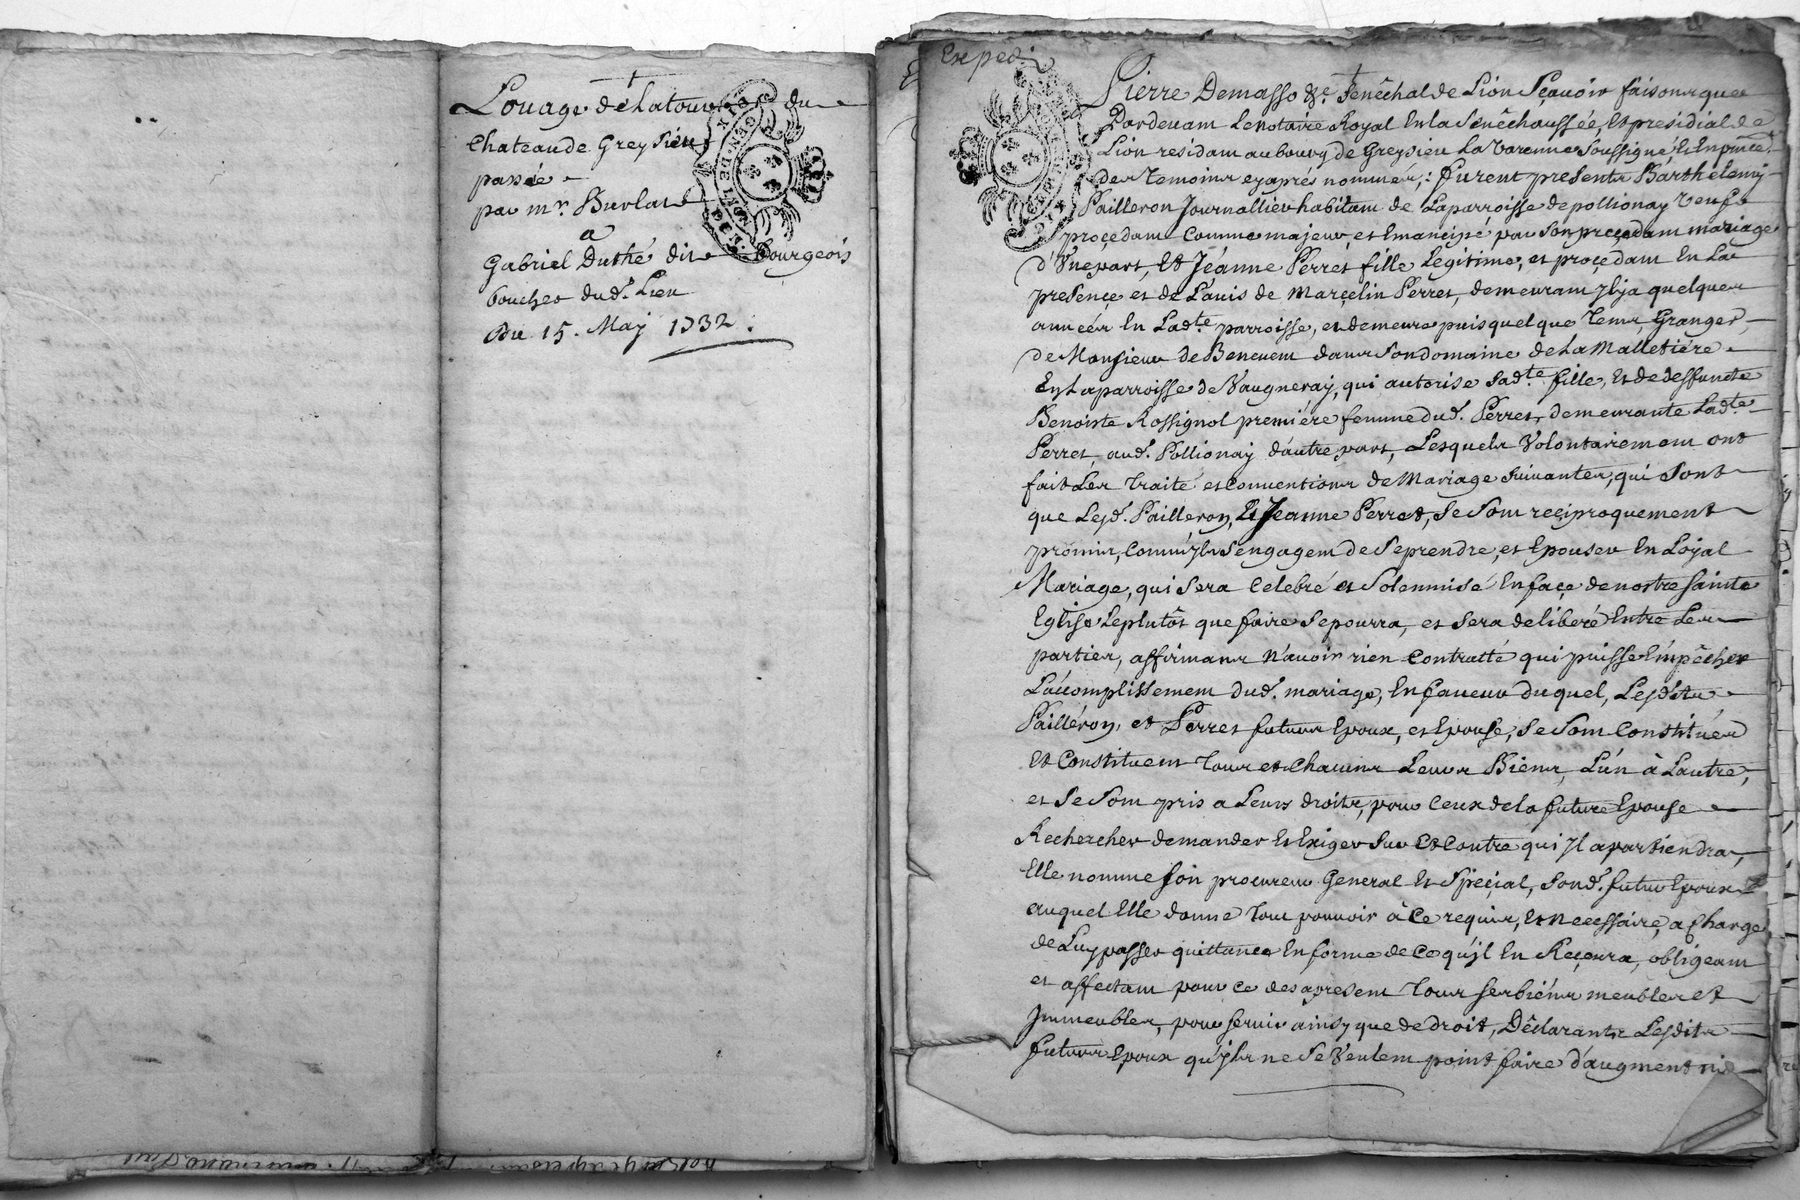 Louage de Latour du
Chateau de Greysieu
passée
par mr. Burlat
a
Gabriel Duthé dit Bourgeois
boucher dud. Lieu
Du 15. Maj 1732.
GEN. DE LYON
Expedié
Pierre Demasso &c. senêchal de Lion Sçavoir faisons que
Pardevant Le notaire Royal En la Senêchaussée, Et presidial de
Lion residant au bourg de Greysieu La Varenne soussigné Et En pnce.
des temoins cy aprés nommes,: furent presents Barthelemy
Pailleron Journallier habitant de La parroisse de pollionay veuf
proçedant comme majeur, et Emancipé par son preçedant mariage
d'Vne part, Et Jéanne Perret fille Legitime, et proçedant En La
presençe et de L'auis de Marçelin Perret, demeurant Jlja quelques
années En Ladte. parroisse, et demeure puis quelque tems, Granger
de Monsieur de Beneuent dans son domaine de La Malletiére
En La parroisse de Vaugneray, qui autorise sadte. fille, Et de deffuncte
Benoiste Rossignol premiére femme dud. Perret, demeurante Ladte.
Perret, aud. Pollionaij d'autre part, Lesquels Volontairement ont
fait Les traité et Conventions de Mariage suiuantes, qui sont
que Lesd. Pailleron, Et Jeanne Perret, se sont reçiproquement
promis, comm'jls s'engagent de se prendre, et Epouser En Loyal
Mariage, qui sera Celebré et solennisé En façe de nostre sainte
Eglise Le plutôt que faire se pourra, et sera deliberé Entre Les
parties, affirmans n'auoir rien Contratté qui puisse Empêcher
L'acomplissement dud. mariage, En faueur duquel, Lesdits
Pailléron, et Perret futurs Epoux, et Epouse, se sont Constitués
Et Constituent tous et chacuns Leurs Biens, L'ún à Lautre,
et se sont pris a Leurs droits, pour Ceux de la future Epouse
Rechercher demander Et Exiger sur Et Contre qui Jl apartiendra,
Elle nomme son procureur General Et Speçial, sond. futur Epoux
auquel Elle donne tout pouuoir à Ce requis, Et necessaire, a charge
de Luy passer quittance En forme de Ce qu'jl En Reçeura, obligeant
et affectant pour ce des apresent tous ses biéns meubles et
Jmmeubles, pour seruir ainsy que de droit, Dêclarants Lesdits
futurs Epoux qu'jls ne se Veulent point faire d'augment ni